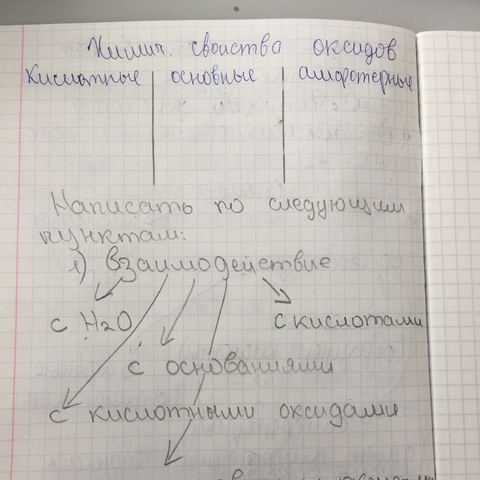 Химич. свойства оксидов
Кислотные основные амфотерные
Написать по следующим
пунктам:
1) Взаимодействие
с H2O
с кислотами
с основаниями
с кислотными оксидами